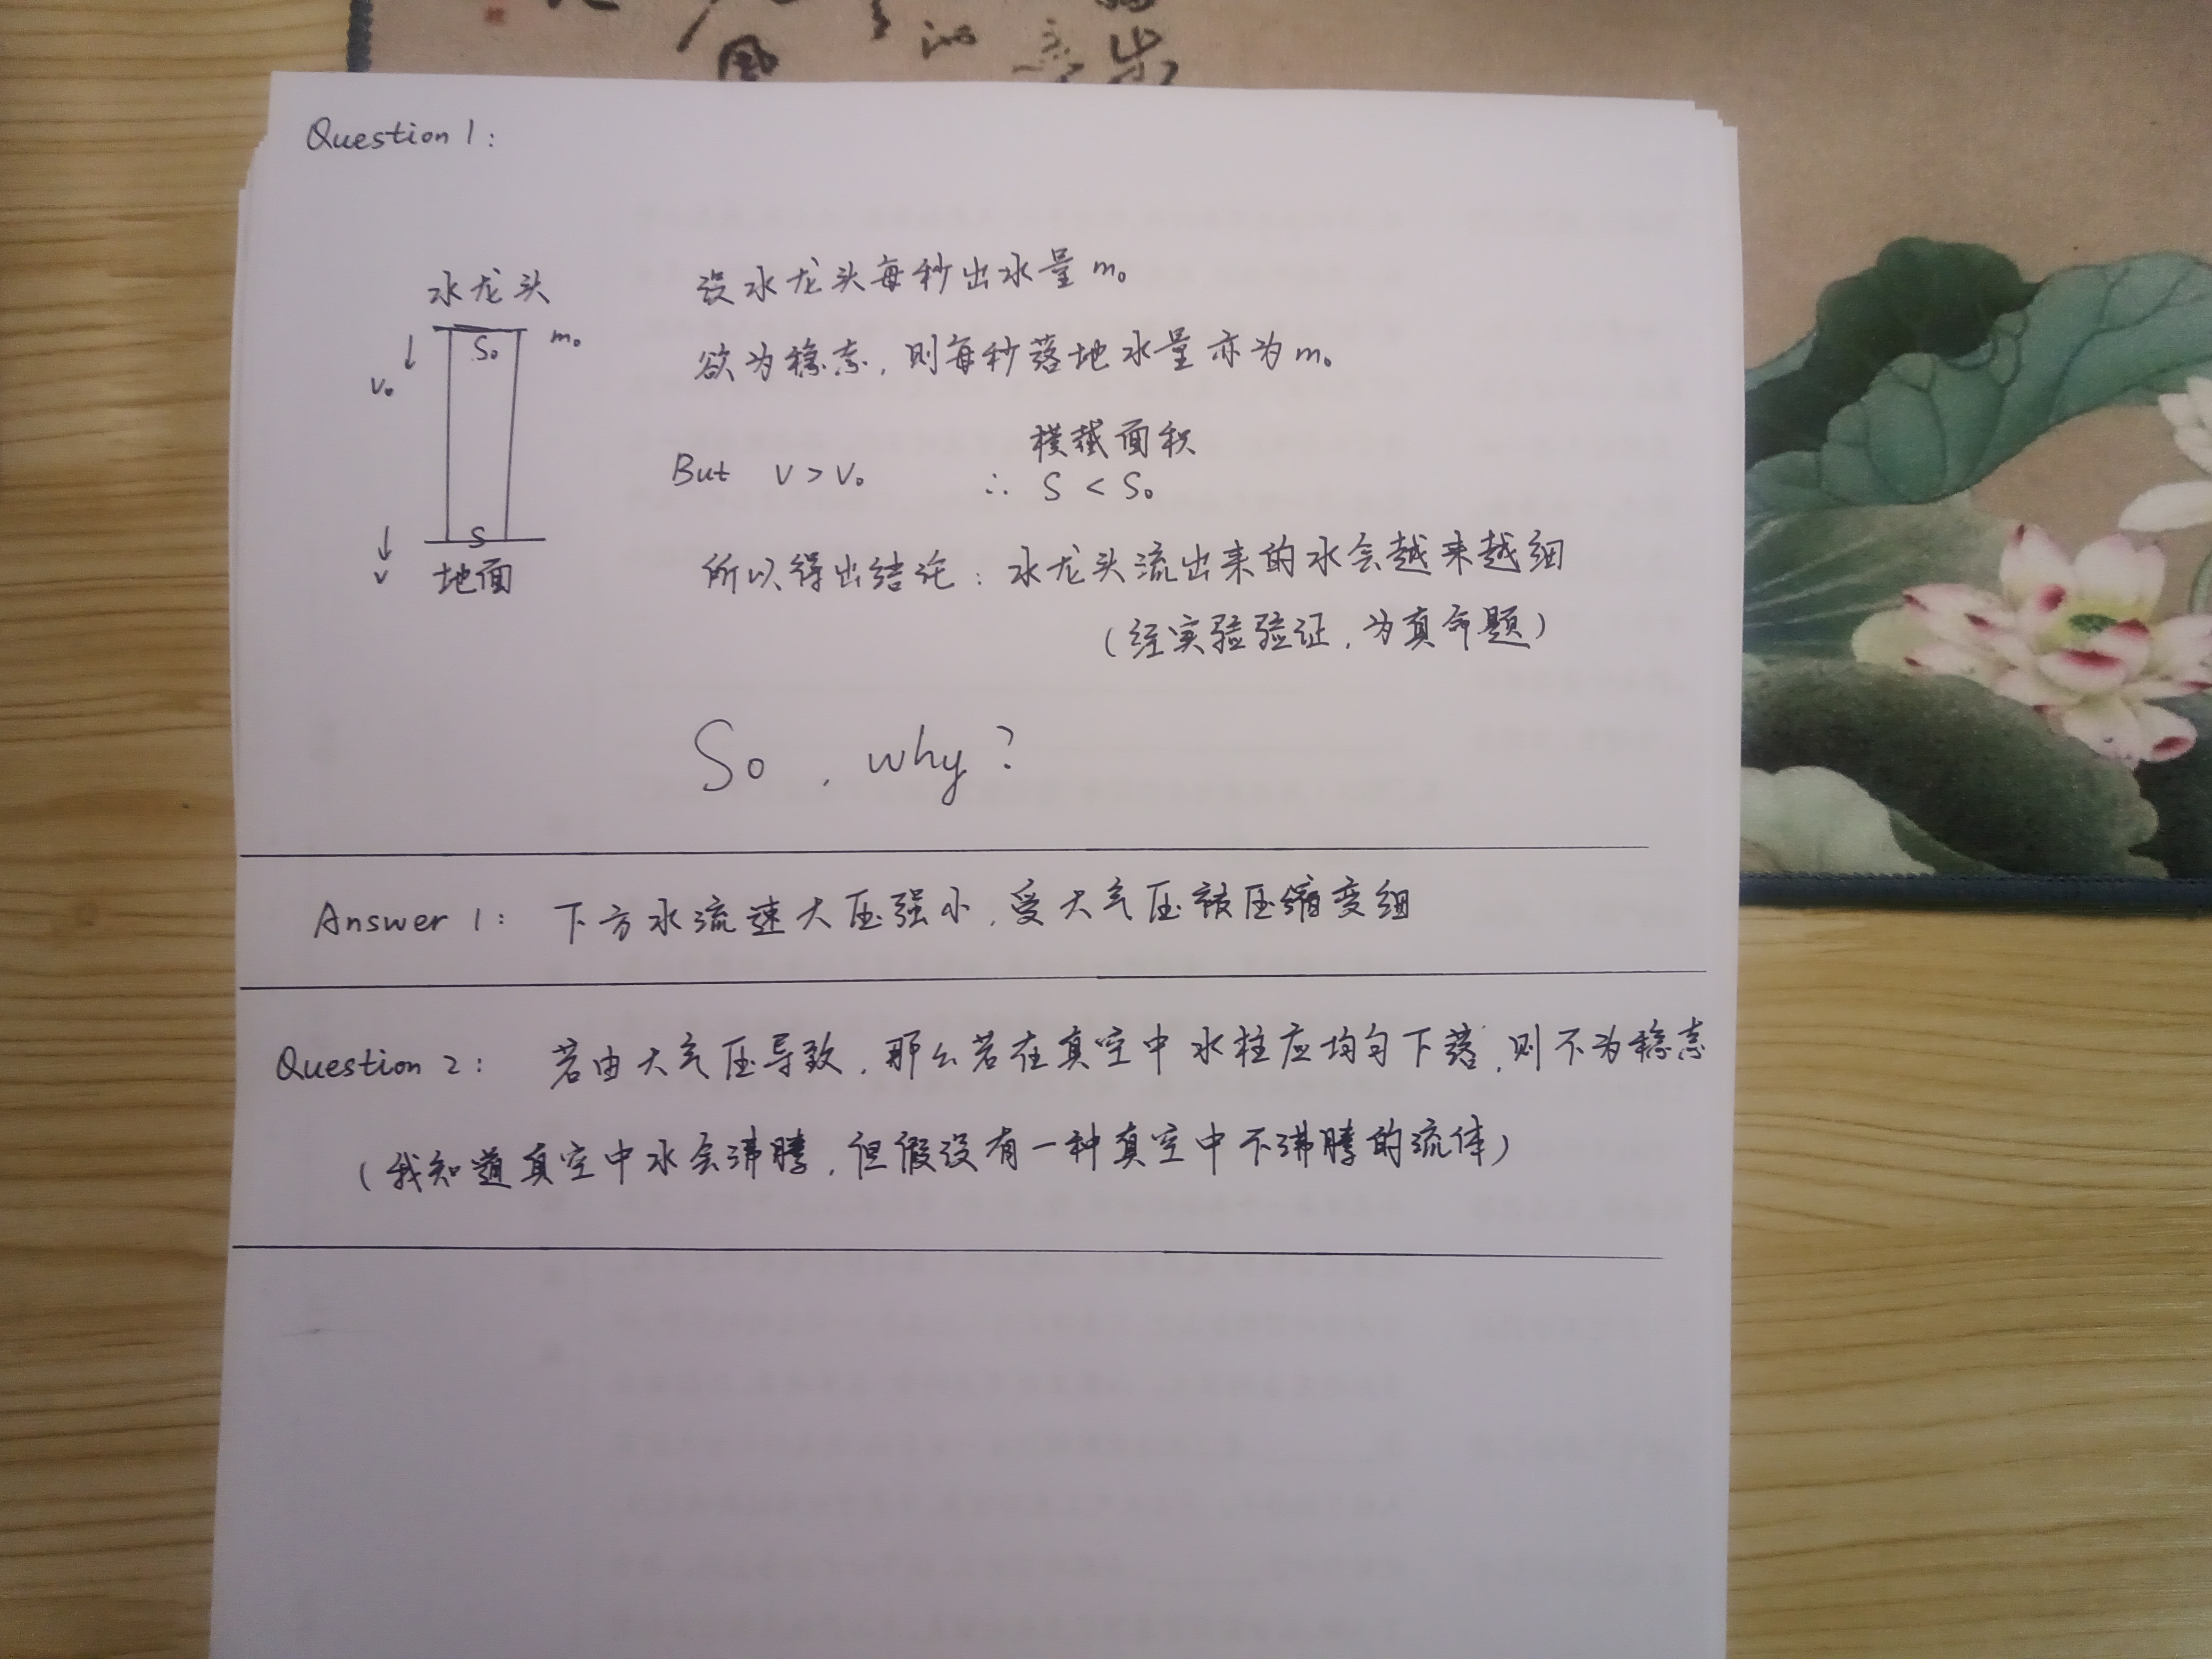 風
Question 1:
水龙头
S₀
m₀
v₀
S
v
地面
设水龙头每秒出水量 m₀
欲为稳态,则每秒落地水量亦为 m₀
横截面积
But v > v₀ ∴ S < S₀
所以得出结论:水龙头流出来的水会越来越细
(经实验验证,为真命题)
So, why?
Answer 1: 下方水流速大压强小,受大气压被压缩变细
Question 2: 若由大气压导致,那么若在真空中水柱应均匀下落,则不为稳态
(我知道真空中水会沸腾,但假设有一种真空中不沸腾的流体)